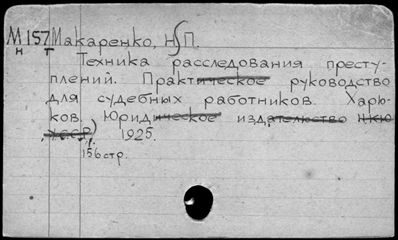 М 157 Макаренко, Н. П.
н т
Техника расследования престу-
плений. Практическое руководство
для судебных работников. Харь-
ков. Юридическое издательство
1925.
156 стр.